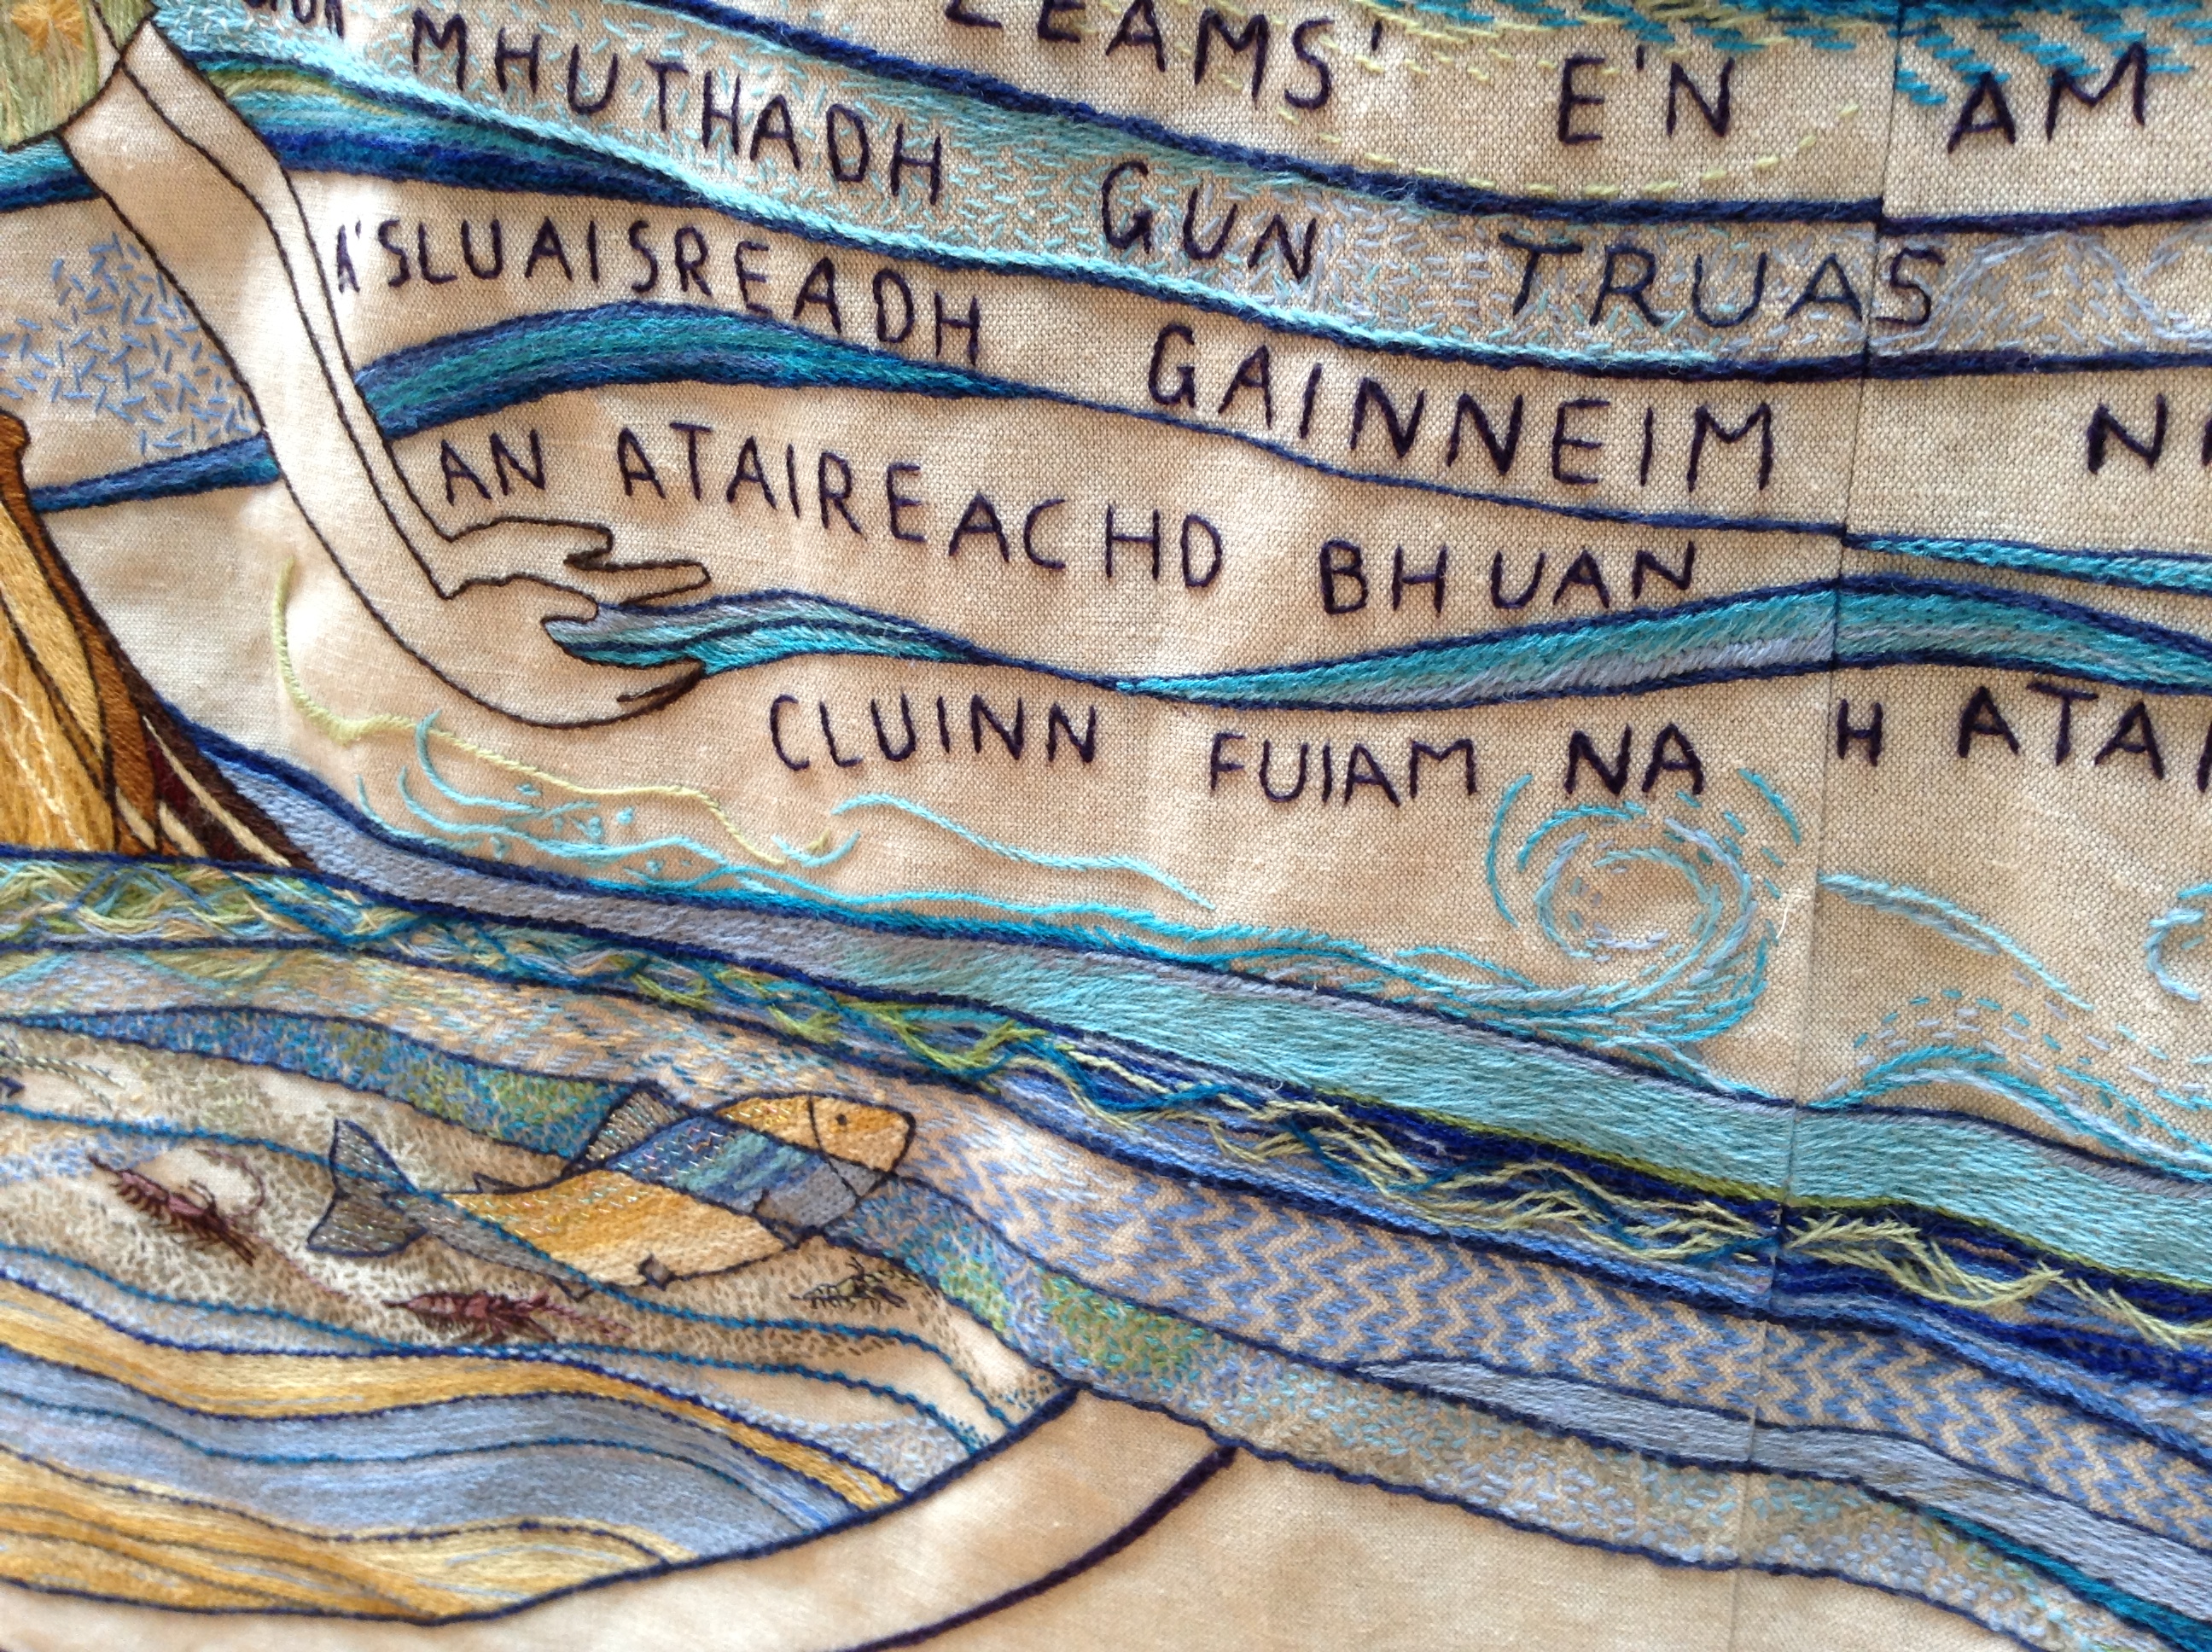 LEAMS' E'N AM
MHUTHADH GUN TRUAS
A' SLUAISREADH GAINNEIM
AN ATAIREACHD BHUAN
CLUINN FUIAM NA H ATA